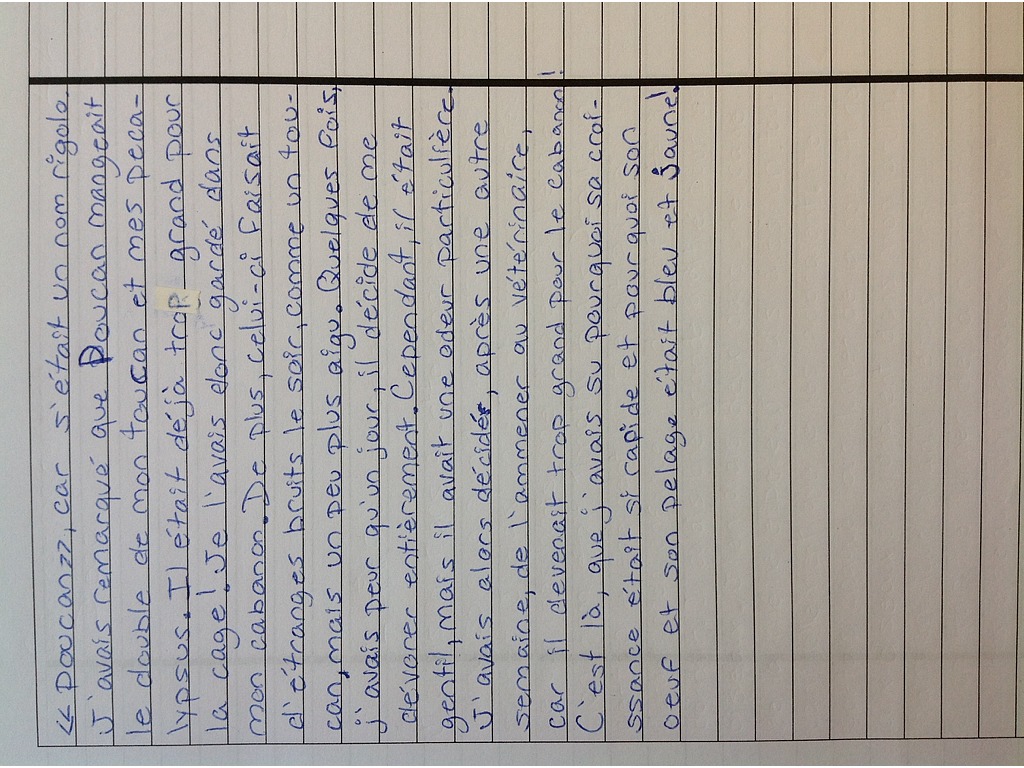 << poucanzz, car s'était un nom rigolo.
J'avais remarqué que Poucan mangeait
le double de mon toucan et mes peca-
lypsus. Il était déja trop grand pour
la cage!. Je l'avais donc gardé dans
mon cabanon. De plus, celui-ci faisait
d'étranges bruits le soir, comme un tou-
can, mais un peu plus aigu. Quelques fois,
j'avais peur qu'un jour, il décide de me
dévorer entièrement. Cependant, il était
gentil, mais il avait une odeur particulière.
J'avais alors décidé, après une autre
semaine, de l'ammener au vétérinaire,
car il devenait trop grand pour le cabanon!
C'est là, que j'avais su pourquoi sa croi-
ssance était si rapide et pourquoi son
oeuf et son pelage était bleu et jaune!